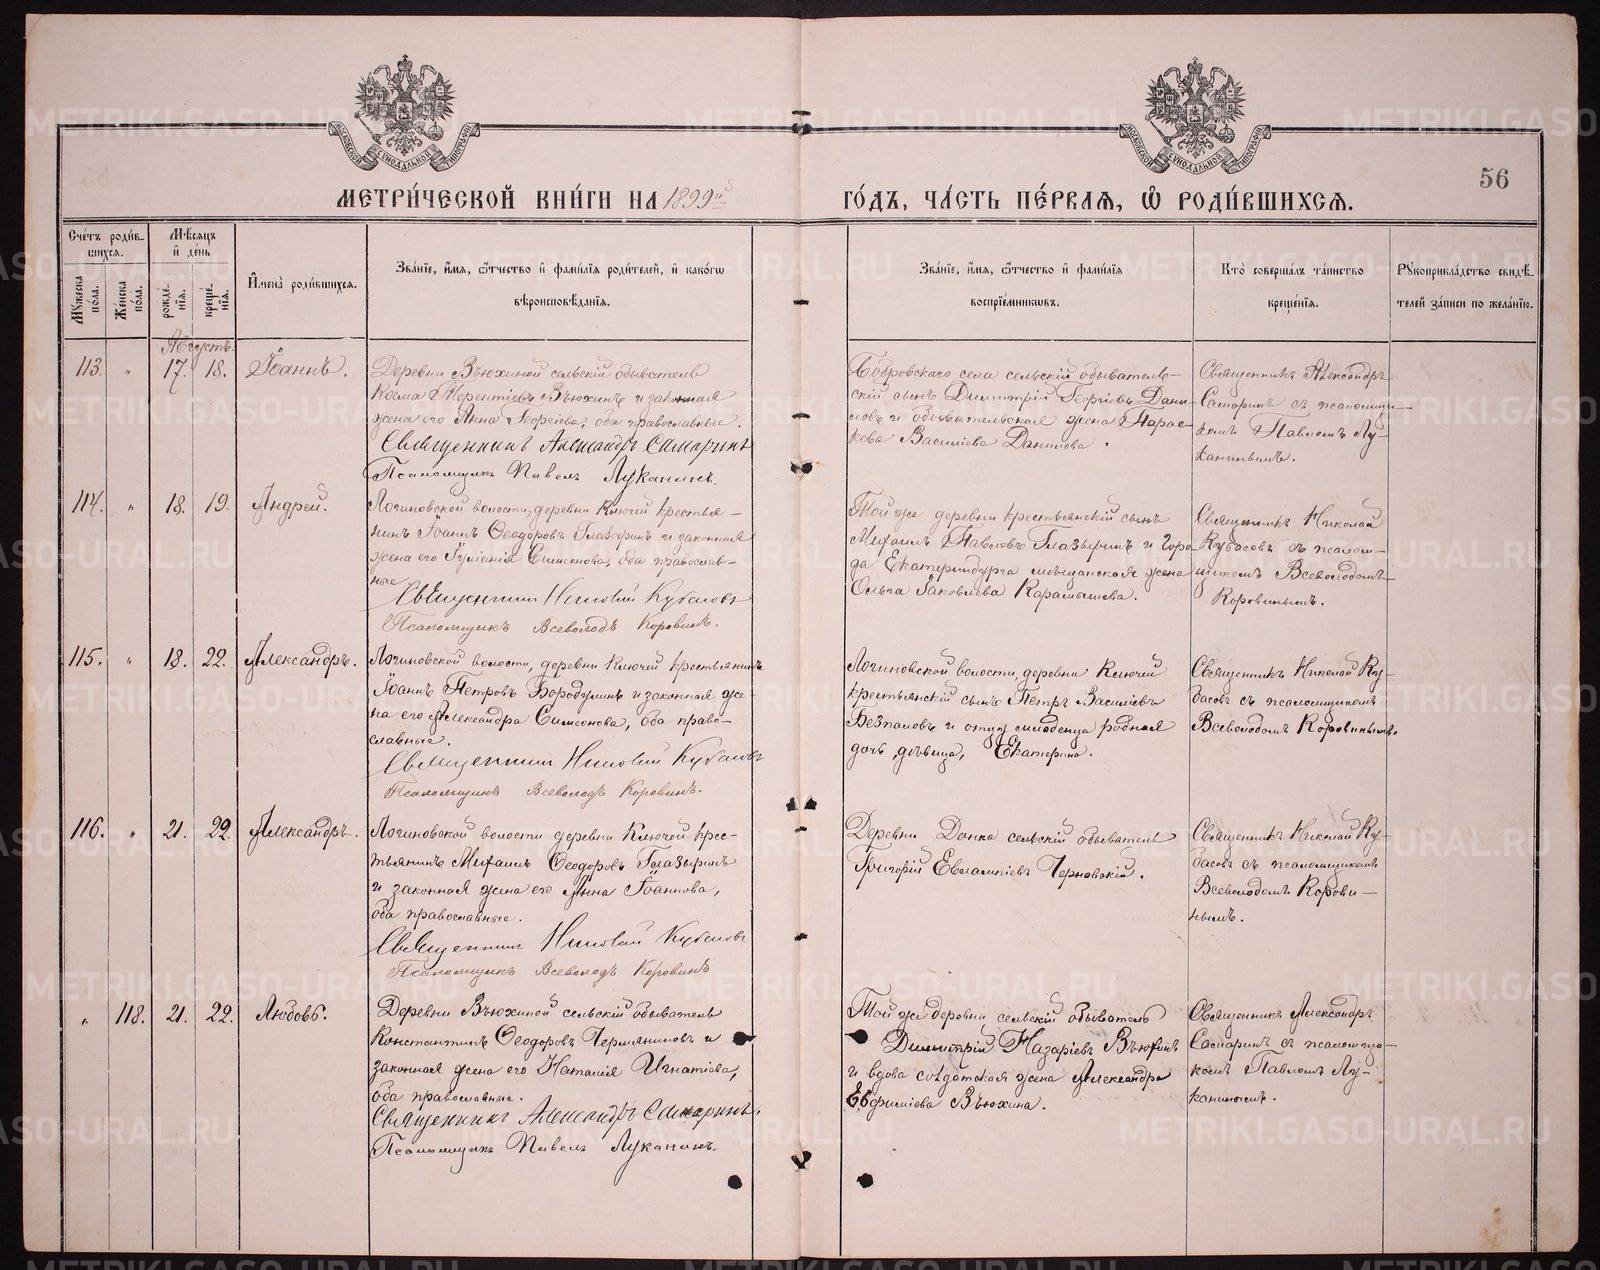 МОСКОВСКОЙ СУНОДАЛЬНОЙ ТИПОГРАФІИ
МОСКОВСКОЙ СУНОДАЛЬНОЙ ТИПОГРАФІИ
МЕТРИ́ЧЕСКОЙ КНИ́ГИ НА 1899й
ГО́ДЪ, ЧА́СТЬ ПЕ́РВАѦ, Ѽ РОДИ́ВШИХСѦ.
56
Сче́тъ роди́в-
шихся.
Му́жеска по́ла.
Же́нска по́ла.
Мѣ́сяцъ
и҆ де́нь
рожде́-
нїѧ.
креще́-
нїѧ.
И҆мена̀ роди́вшихсѧ.
Зва́нїе, и҆́мѧ, ѻ҆́тчество и҆ фами́лїѧ роди́телей, и҆ како́гѡ
вѣроисповѣ́данїѧ.
Зва́нїе, и҆́мѧ, ѻ҆́тчество и҆ фами́лїѧ
воспрїе́мникѡвъ.
Кто̀ соверша́лъ та́инство
креще́нїѧ.
Рꙋкоприкла́дство свидѣ́-
телей за́писи по жела́нїю.
Августъ.
113. „ 17. 18. Іоаннъ.
Деревни Вьюхиной сельскій обыватель
Косма Терентіевъ Вьюхинъ и законная
жена его Анна Георгіева, оба православные.
Священникъ Александръ Самаринъ
Псаломщикъ Павелъ Луканинъ.
Бобровскаго села сельскій обыватель-
скій сынъ Димитрій Георгіевъ Дани-
ловъ и обывательская жена Парас-
кева Василіева Данилова.
Священникъ Александръ
Самаринъ съ псаломщи-
комъ Павломъ Лу-
канинымъ.
114. „ 18. 19. Андрей.
Логиновской волости, деревни Ключей крестья-
нинъ Іоаннъ Ѳеодоровъ Глазыринъ и законная
жена его Іуліанія Симеонова, оба православ-
ные
Священникъ Николай Кубасовъ
Псаломщикъ Всеволодъ Коровинъ.
Той же деревни крестьянскій сынъ
Михаилъ Павловъ Глазыринъ и горо-
да Екатеринбурга мѣщанская жена
Ольга Іаковлева Карамышева.
Священникъ Николай
Кубасовъ съ псалом-
щикомъ Всеволодомъ
Коровинымъ.
115. „ 18. 22. Александръ.
Логиновской волости, деревни Ключей крестьянинъ
Іоаннъ Петровъ Бородулинъ и законная же-
на его Александра Симеонова, оба право-
славные.
Священникъ Николай Кубасовъ
Псаломщикъ Всеволодъ Коровинъ.
Логиновской волости, деревни Ключей
крестьянскій сынъ Петръ Василіевъ
Безпаловъ и отцу младенца родная
дочь, дѣвица, Екатерина.
Священникъ Николай Ку-
басовъ съ псаломщикомъ
Всеволодомъ Коровинымъ.
116. „ 21. 22. Александръ.
Логиновской волости деревни Ключей крес-
тьянинъ Михаилъ Ѳеодоровъ Глазыринъ
и законная жена его Анна Іоаннова,
оба православные.
Священникъ Николай Кубасовъ
Псаломщикъ Всеволодъ Коровинъ
Деревни Донка сельскій обыватель
Григорій Евлампіевъ Чернавскій.
Священникъ Николай Ку-
басовъ съ псаломщикомъ
Всеволодомъ Корови-
нымъ.
„ 118. 21. 22. Любовь.
Деревни Вьюхиной сельскій обыватель
Константинъ Ѳеодоровъ Чермяниновъ и
законная жена его Наталія Игнатіева,
оба православные.
Священникъ Александръ Самаринъ.
Псаломщикъ Павелъ Луканинъ.
Той же деревни сельскій обыватель
Димитрій Назаріевъ Вьюхинъ
и вдова солдатская жена Александра
Евфиміева Вьюхина.
Священникъ Александръ
Самаринъ съ псаломщи-
комъ Павломъ Лу-
канинымъ.
METRIKI.GASO-URAL.RU